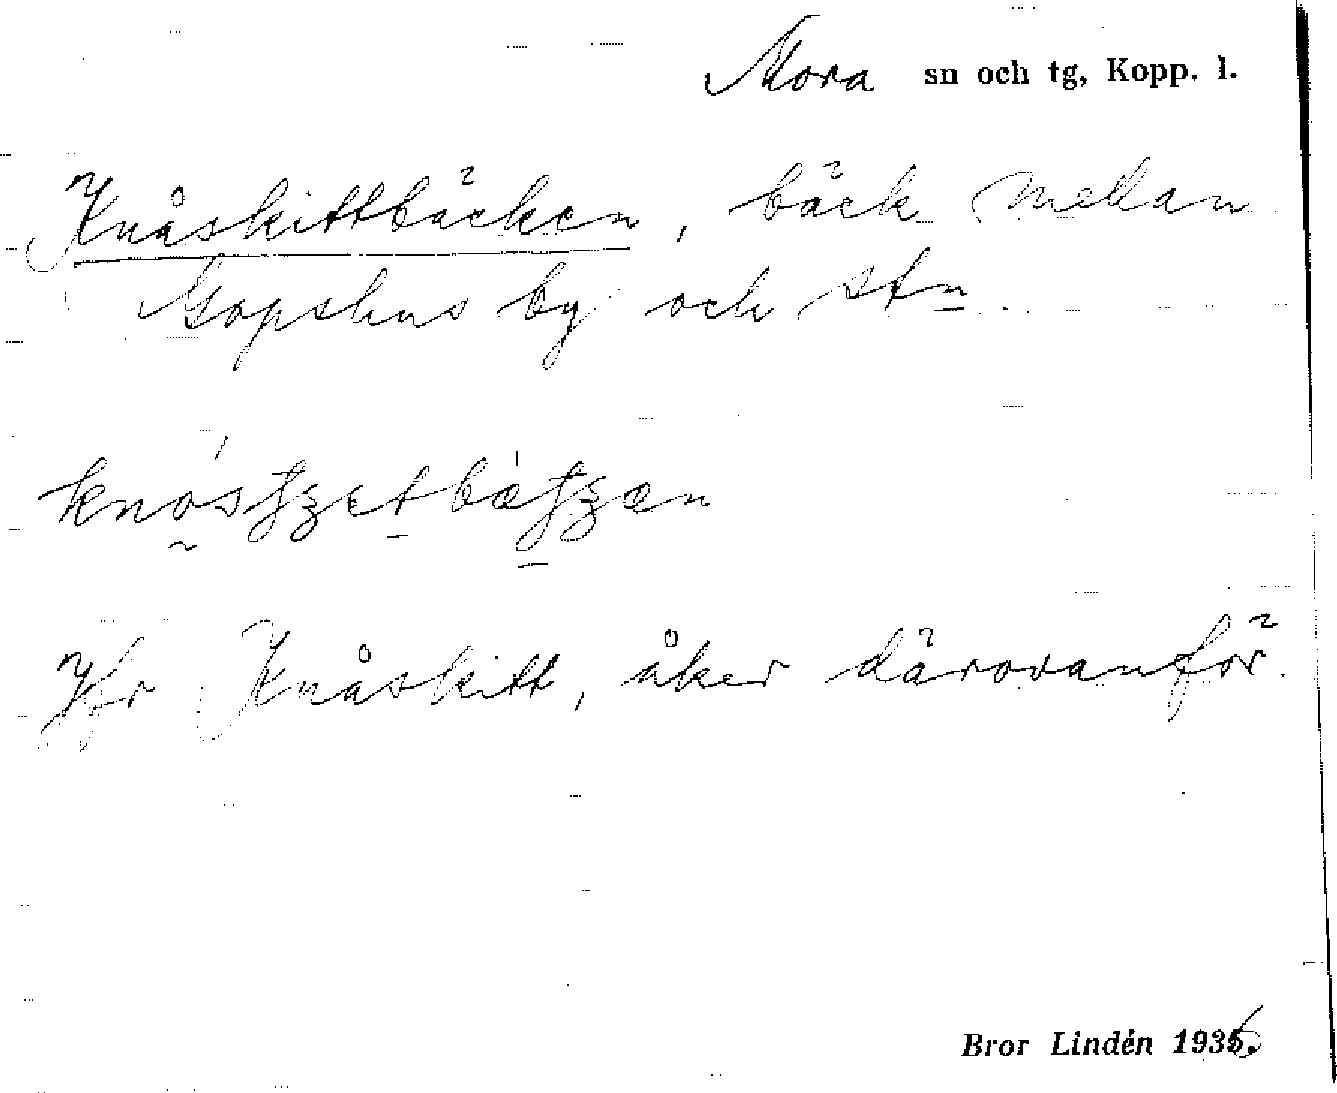 Mora sn och tg, Kopp. l.
Knåskittbäcken, bäck mellan
Gopshus by och stn
Jfr Knåskitt, åker därovanför.
Bror Lindén 1936.